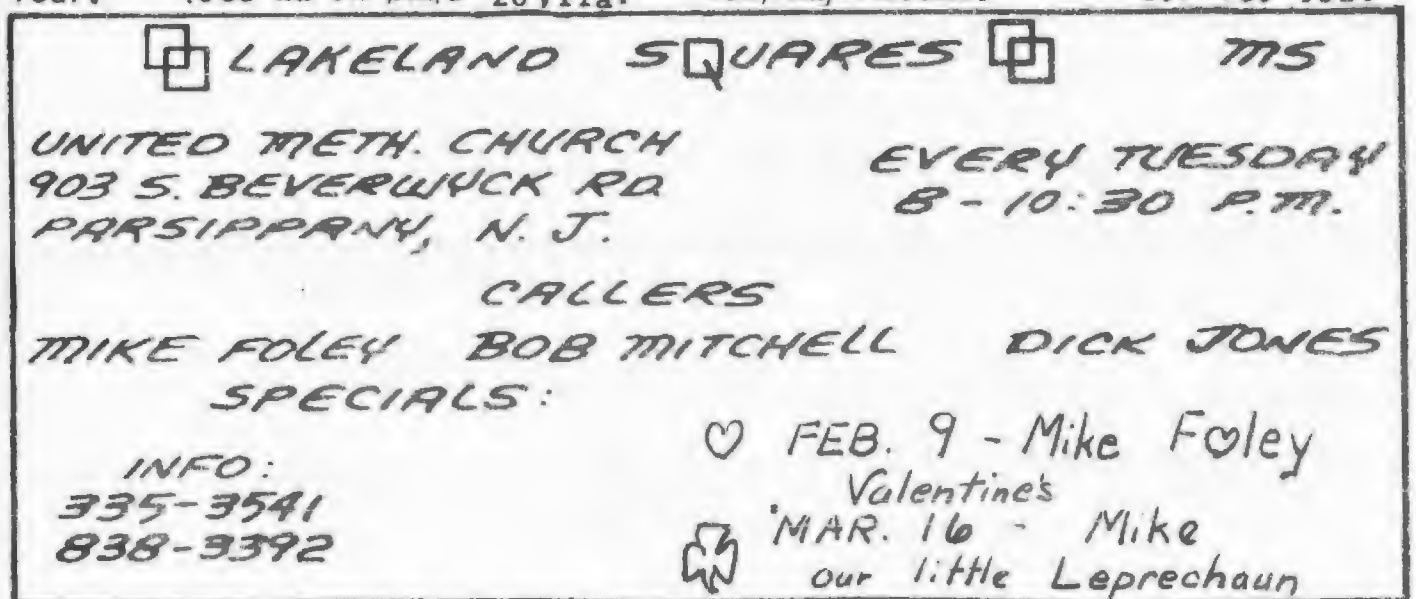 LAKELAND SQUARES MS
UNITED METH. CHURCH
903 S. BEVERWYCK RD
PARSIPPANY, N. J.
EVERY TUESDAY
8 - 10:30 P.M.
CALLERS
MIKE FOLEY BOB MITCHELL DICK JONES
SPECIALS:
INFO:
335-3541
838-3392
♡ FEB. 9 - Mike Foley
Valentine's
MAR. 16 - Mike
our little Leprechaun